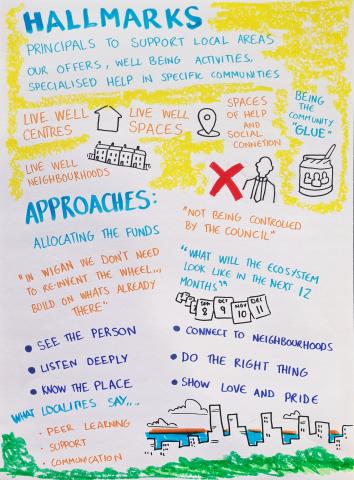 HALLMARKS
PRINCIPALS TO SUPPORT LOCAL AREAS
OUR OFFERS, WELL BEING ACTIVITIES.
SPECIALISED HELP IN SPECIFIC COMMUNITIES
LIVE WELL
CENTRES
LIVE WELL
SPACES
SPACES
OF HELP
AND
SOCIAL
CONNETION
BEING
THE
COMMUNITY
"GLUE"
LIVE WELL
NEIGHBOURHOODS
APPROACHES:
ALLOCATING THE FUNDS
"IN WIGAN WE DON'T NEED
TO RE-INVENT THE WHEEL...
BUILD ON WHATS ALREADY
THERE"
"NOT BEING CONTROLLED
BY THE COUNCIL"
"WHAT WILL THE ECOSYSTEM
LOOK LIKE IN THE NEXT 12
MONTHS"
8
9
NOV
10
DEC
11
• SEE THE PERSON
• LISTEN DEEPLY
• KNOW THE PLACE
• CONNECT TO NEIGHBOURHOODS
• DO THE RIGHT THING
• SHOW LOVE AND PRIDE
WHAT LOCALITIES SAY....
• PEER LEARNING
• SUPPORT
• COMMUNICATION